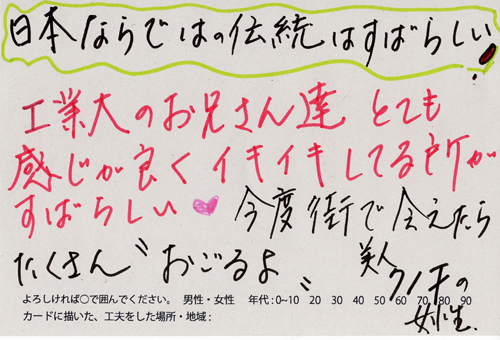 日本ならではの伝統はすばらしい!
工業大のお兄さん達 とても
感じが良くイキイキしてる所が
すばらしい♥ 今度街で会えたら
たくさん〝おごるよ〟
美人
の
女性.
よろしければ○で囲んでください。 男性・女性 年代：0~10 20 30 40 50 60 70 80 90
カードに描いた、工夫をした場所・地域：